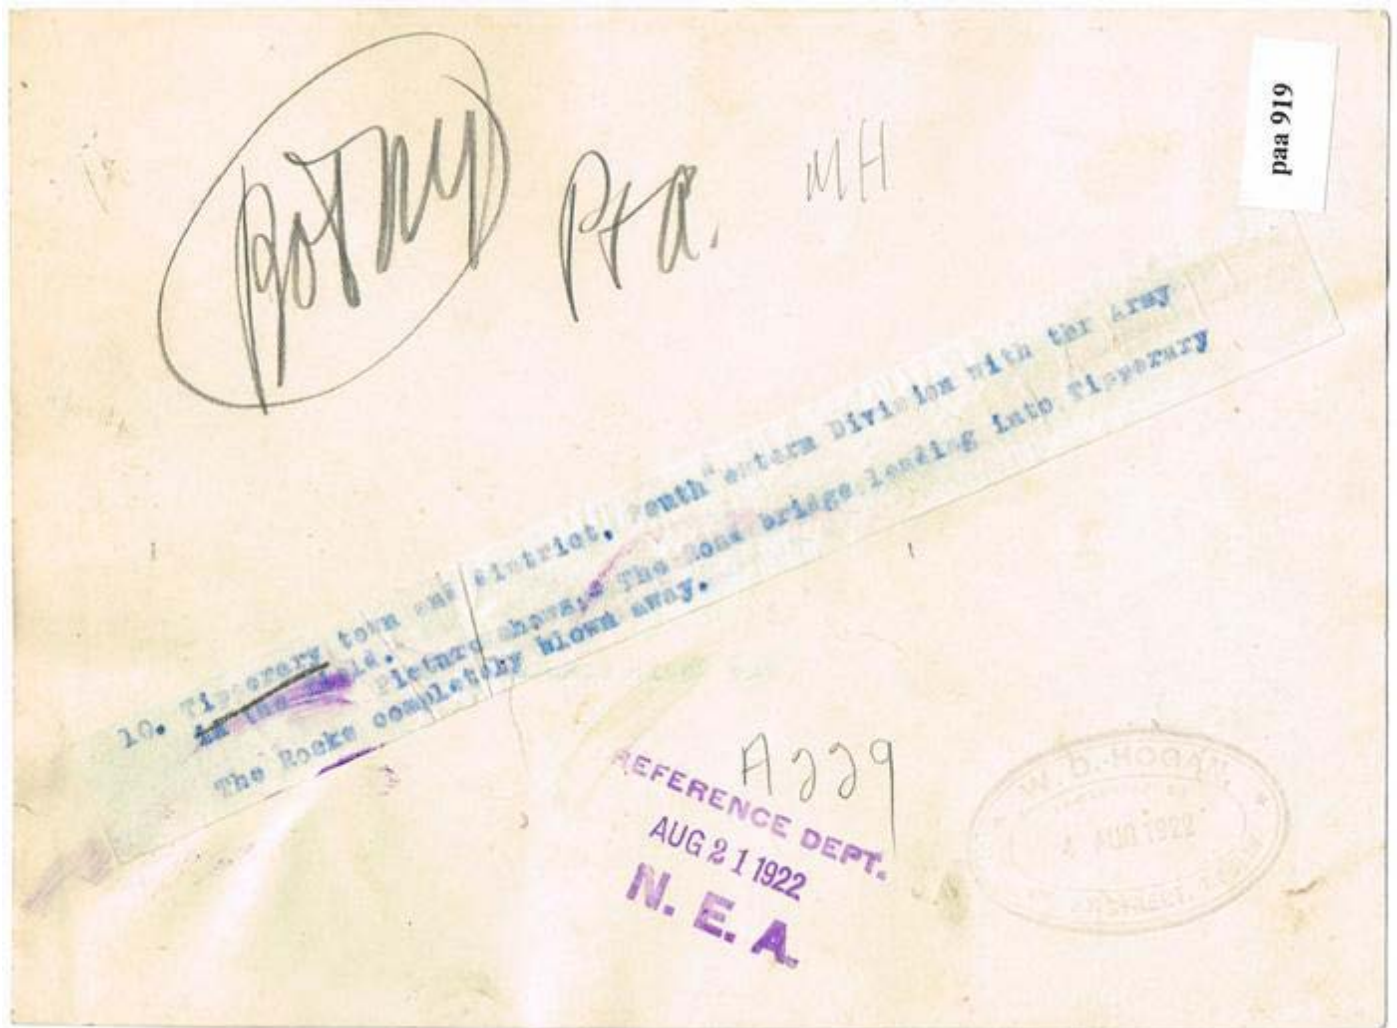 Pta.
MH
paa 919
10. Tipperary town and district. South estern Division with thr Army
in the Field.
Picture shows,: The Road bridge leading into Tipperary
The Rocks completeby blown away.
A229
REFERENCE DEPT.
AUG 21 1922
N. E. A.
W. D. HOGAN
AUG 1922